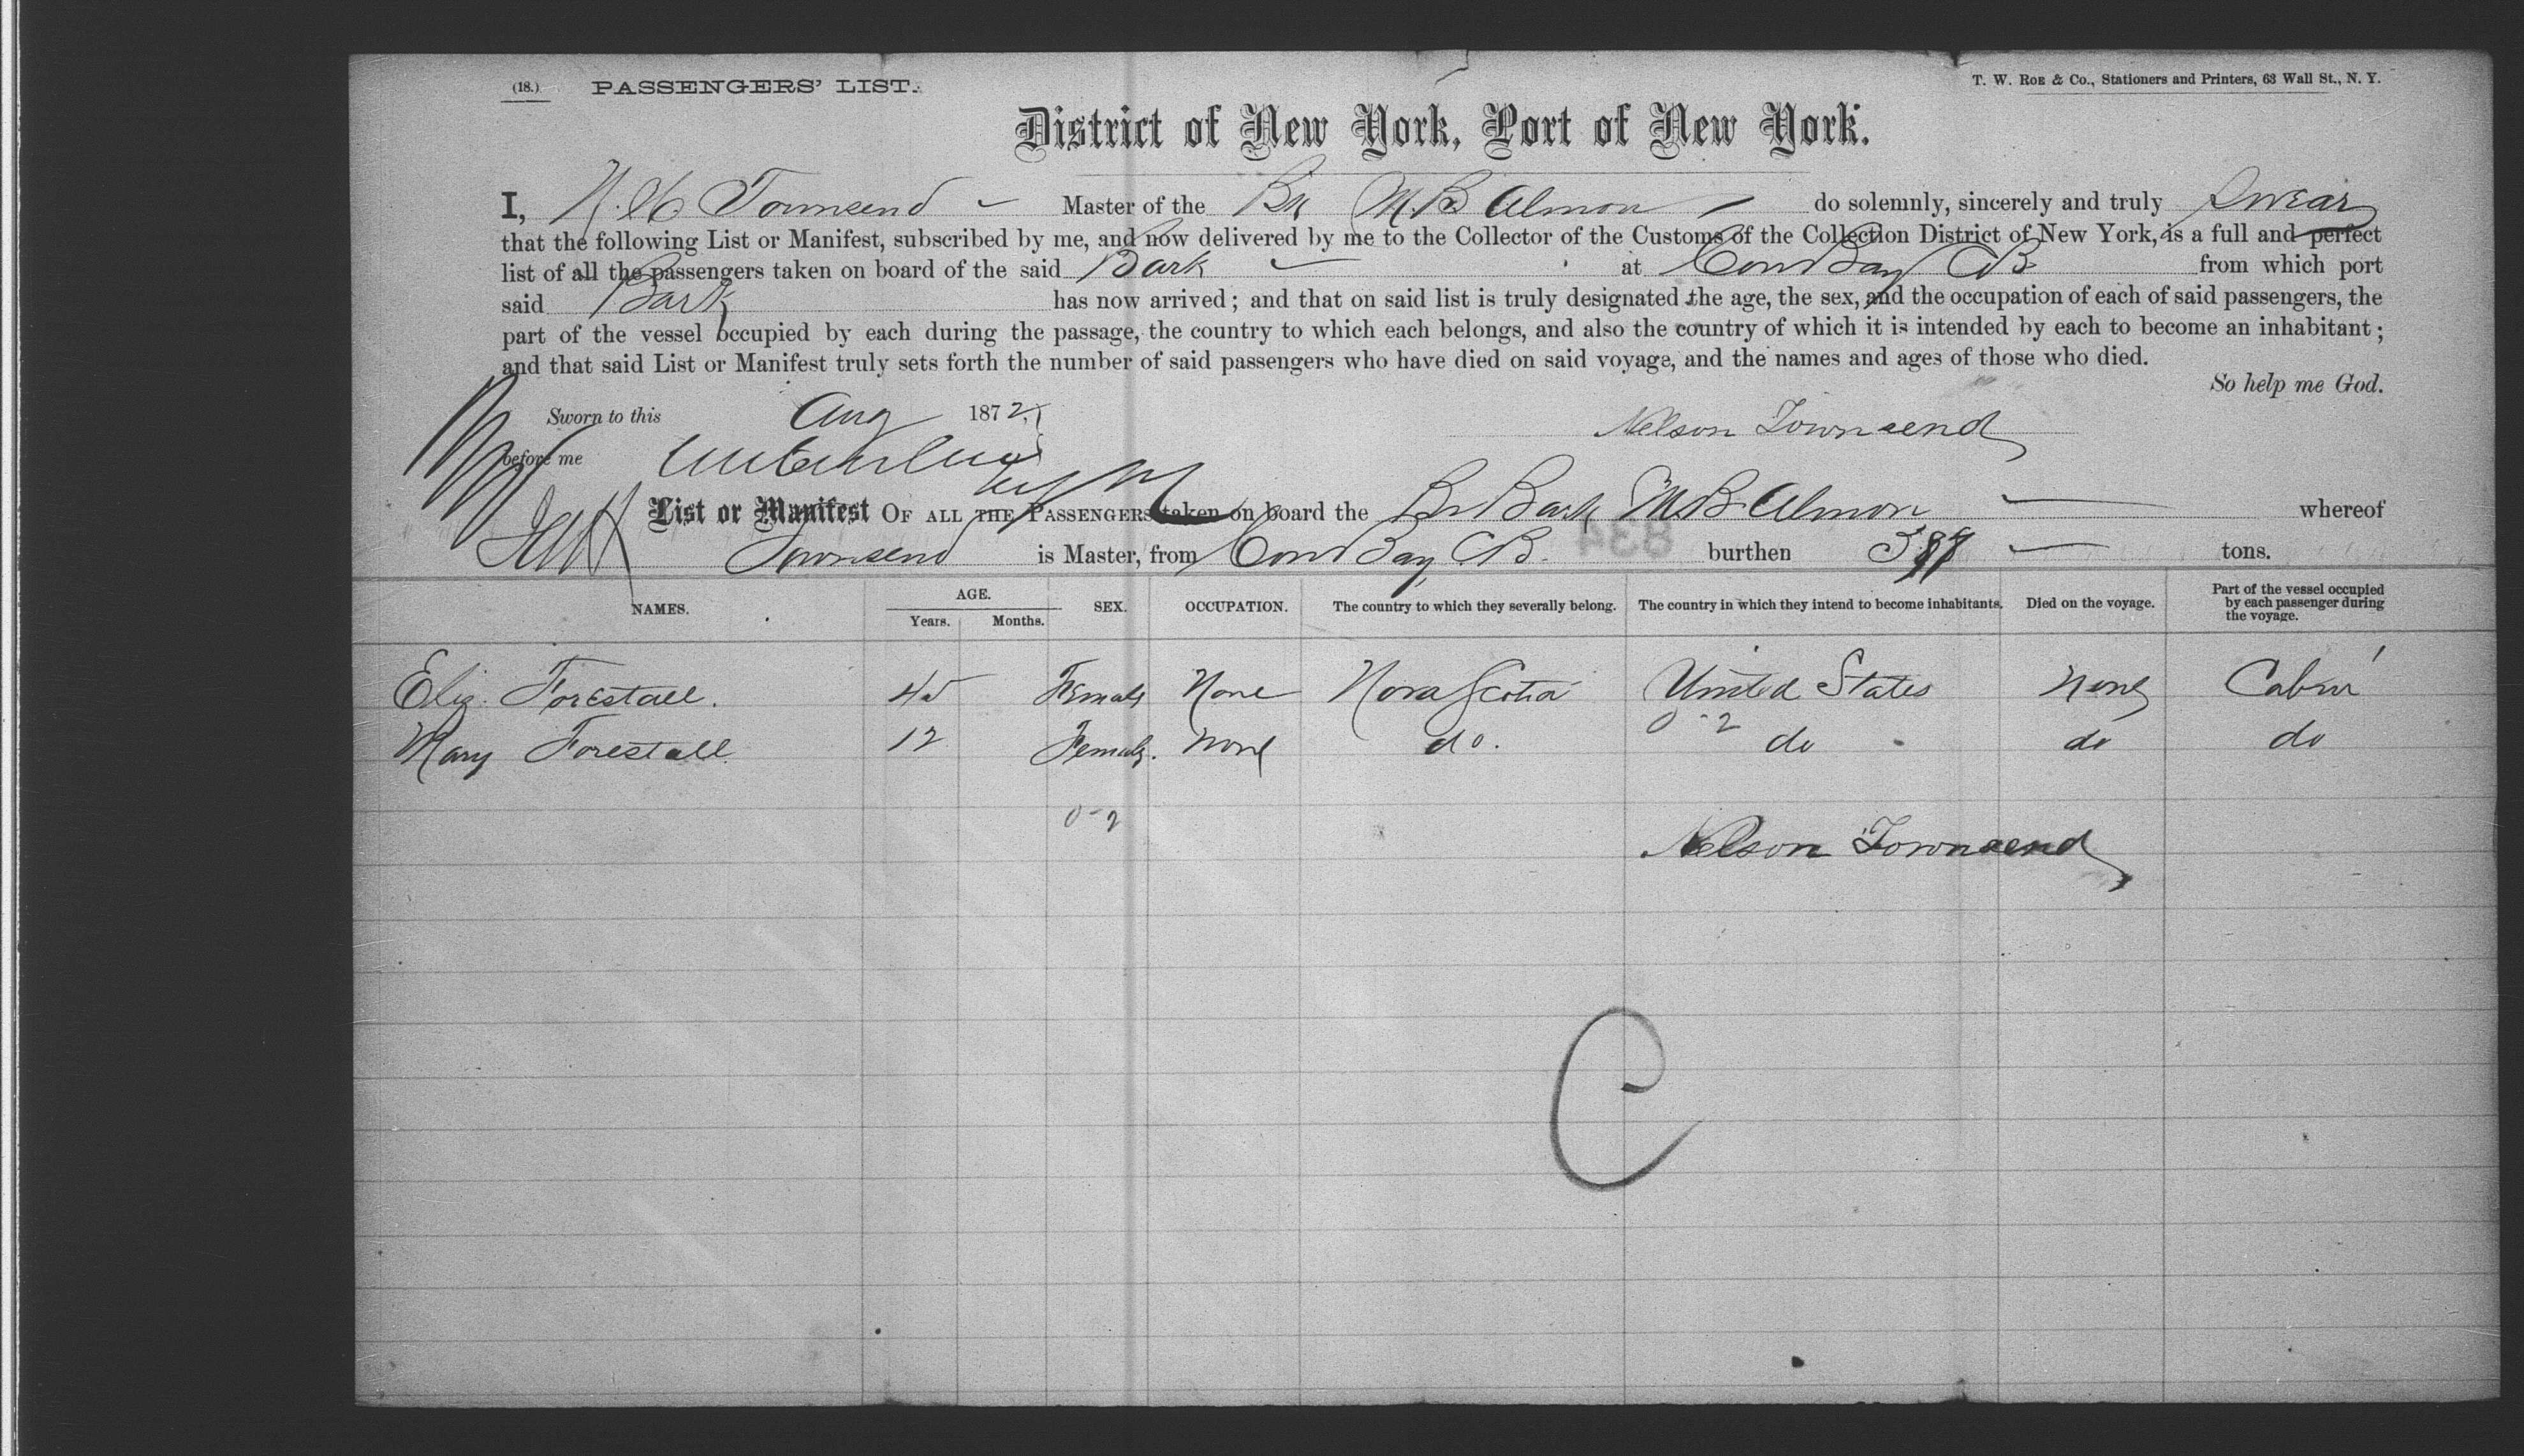 (18.) PASSENGERS' LIST. T. W. ROE & Co., Stationers and Printers, 63 Wall St., N. Y.
District of New York, Port of New York.
I, Townsend Master of the M. B. Almon do solemnly, sincerely and truly swear
that the following List or Manifest, subscribed by me, and now delivered by me to the Collector of the Customs of the Collection District of New York, is a full and perfect
list of all the passengers taken on board of the said Bark at Cow Bay CB from which port
said Bark has now arrived; and that on said list is truly designated the age, the sex, and the occupation of each of said passengers, the
part of the vessel occupied by each during the passage, the country to which each belongs, and also the country of which it is intended by each to become an inhabitant;
and that said List or Manifest truly sets forth the number of said passengers who have died on said voyage, and the names and ages of those who died.
So help me God.
Sworn to this Aug 1872
Nelson Townsend
before me
List or Manifest OF ALL THE PASSENGERS taken on board the Br Bark M B Almon whereof
Townsend is Master, from Cow Bay CB. 834 burthen tons.
NAMES. AGE. Years. Months. SEX. OCCUPATION. The country to which they severally belong. The country in which they intend to become inhabitants. Died on the voyage. Part of the vessel occupied by each passenger during the voyage.
Eliz. Forestall. 45 Female None Nova Scotia United States None Cabin
0-2
Mary Forestall 12 Female. None do. do do do
0-2
Nelson Townsend
C